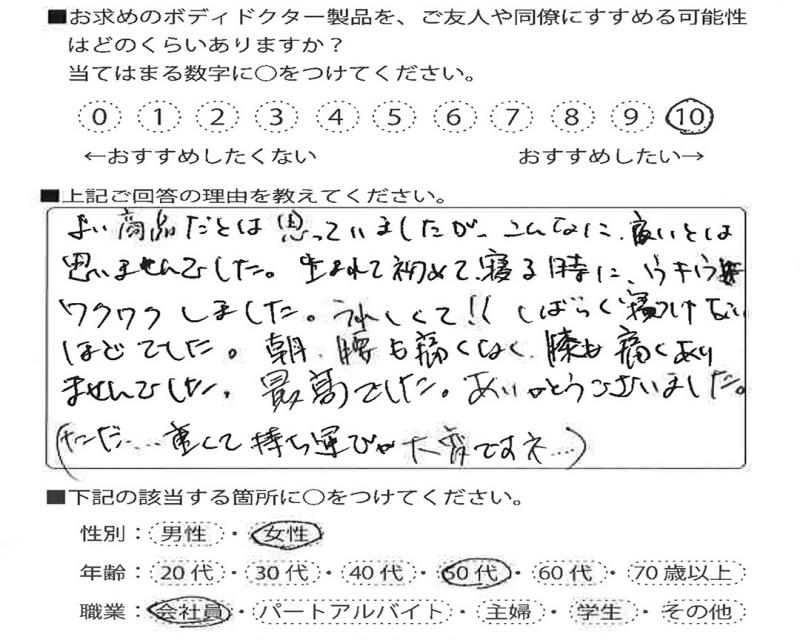 ■お求めのボディドクター製品を、ご友人や同僚にすすめる可能性
はどのくらいありますか？
当てはまる数字に○をつけてください。
0 1 2 3 4 5 6 7 8 9 10
←おすすめしたくない おすすめしたい→
■上記ご回答の理由を教えてください。
よい商品だとは思っていましたが、こんなに良いとは
思いませんでした。生まれて初めて、寝る時に、ウキウキ
ワクワクしました。うれしくて!!しばらく寝つけない
ほどでした。朝、腰も痛くなく、膝も痛くあり
ませんでした。最高でした。ありがとうございました。
(ただ…重くて持ち運びが大変ですネ…)
■下記の該当する箇所に○をつけてください。
性別：男性・女性
年齢：20代・30代・40代・50代・60代・70歳以上
職業：会社員・パートアルバイト・主婦・学生・その他